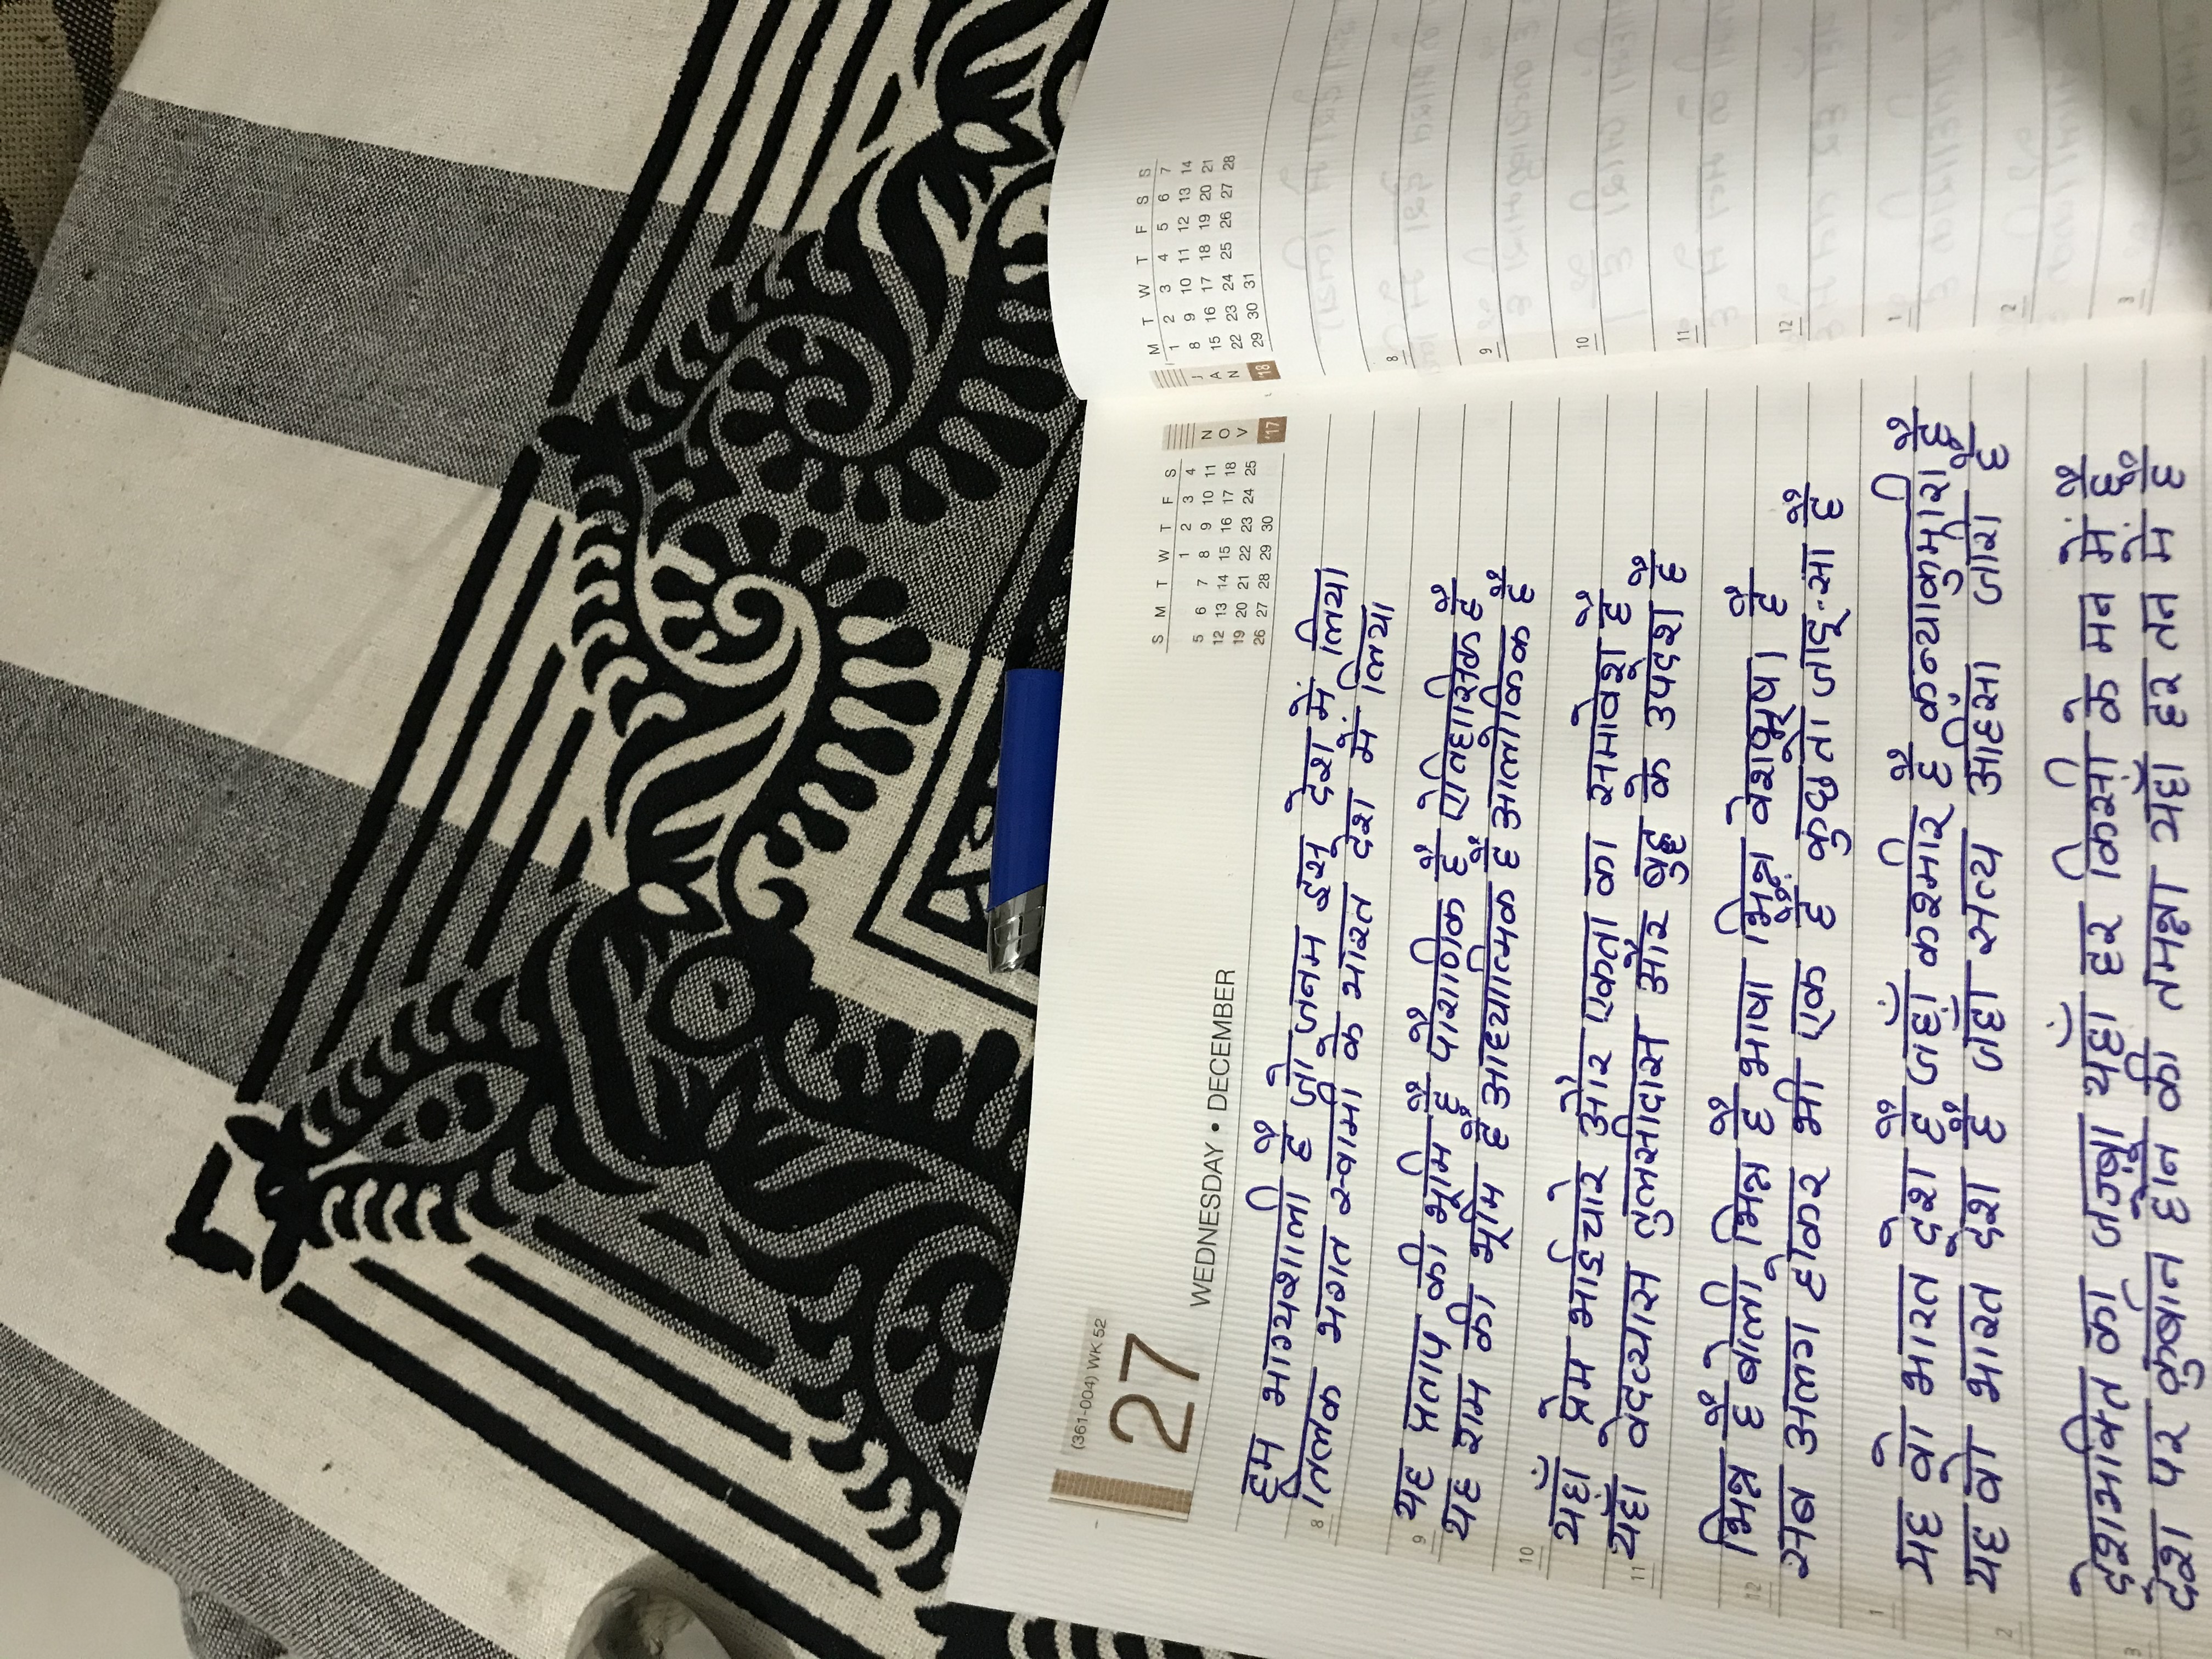 (361-004) WK 52
27
WEDNESDAY • DECEMBER
S M T W T F S
1 2 3 4
5 6 7 8 9 10 11
12 13 14 15 16 17 18
19 20 21 22 23 24 25
26 27 28 29 30
NOV
'17
हम भाग्यशाली है जो जनम इस देश में लिया
8 तिलक भगत स्वामी के भारत देश में लिया
यह प्रताप की भूमि है पौराणिक है ऐतिहासिक है
9 यह राम की भूमि है आध्यात्मिक है आलौकिक है
10 यहाँ प्रेम भाईचारे और एकता का समावेश है
11 यहाँ वेदव्यास तुलसीदास और बुद्ध के उपदेश है
भिन्न है बोली भिन्न है भाषा भिन्न वेशभूषा है
12 सब अलग होकर भी एक है कुछ तो जादू-सा है
यह वो भारत देश है जहाँ कश्मीर है कन्याकुमारी है
1 यह वो भारत देश है जहाँ सत्य अहिंसा जारी है
2
देशभक्ति का जज़्बा यहाँ हर किसी के मन में है
3 देश पर कुर्बान होने की तमन्ना यहाँ हर तन में है
M T W T F S S
1 2 3 4 5 6 7
8 9 10 11 12 13 14
15 16 17 18 19 20 21
22 23 24 25 26 27 28
29 30 31
JAN
'18
8
9
10
11
12
1
2
3